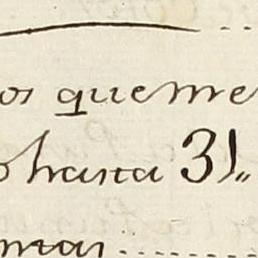 os que me
hasta 31..
mas.....